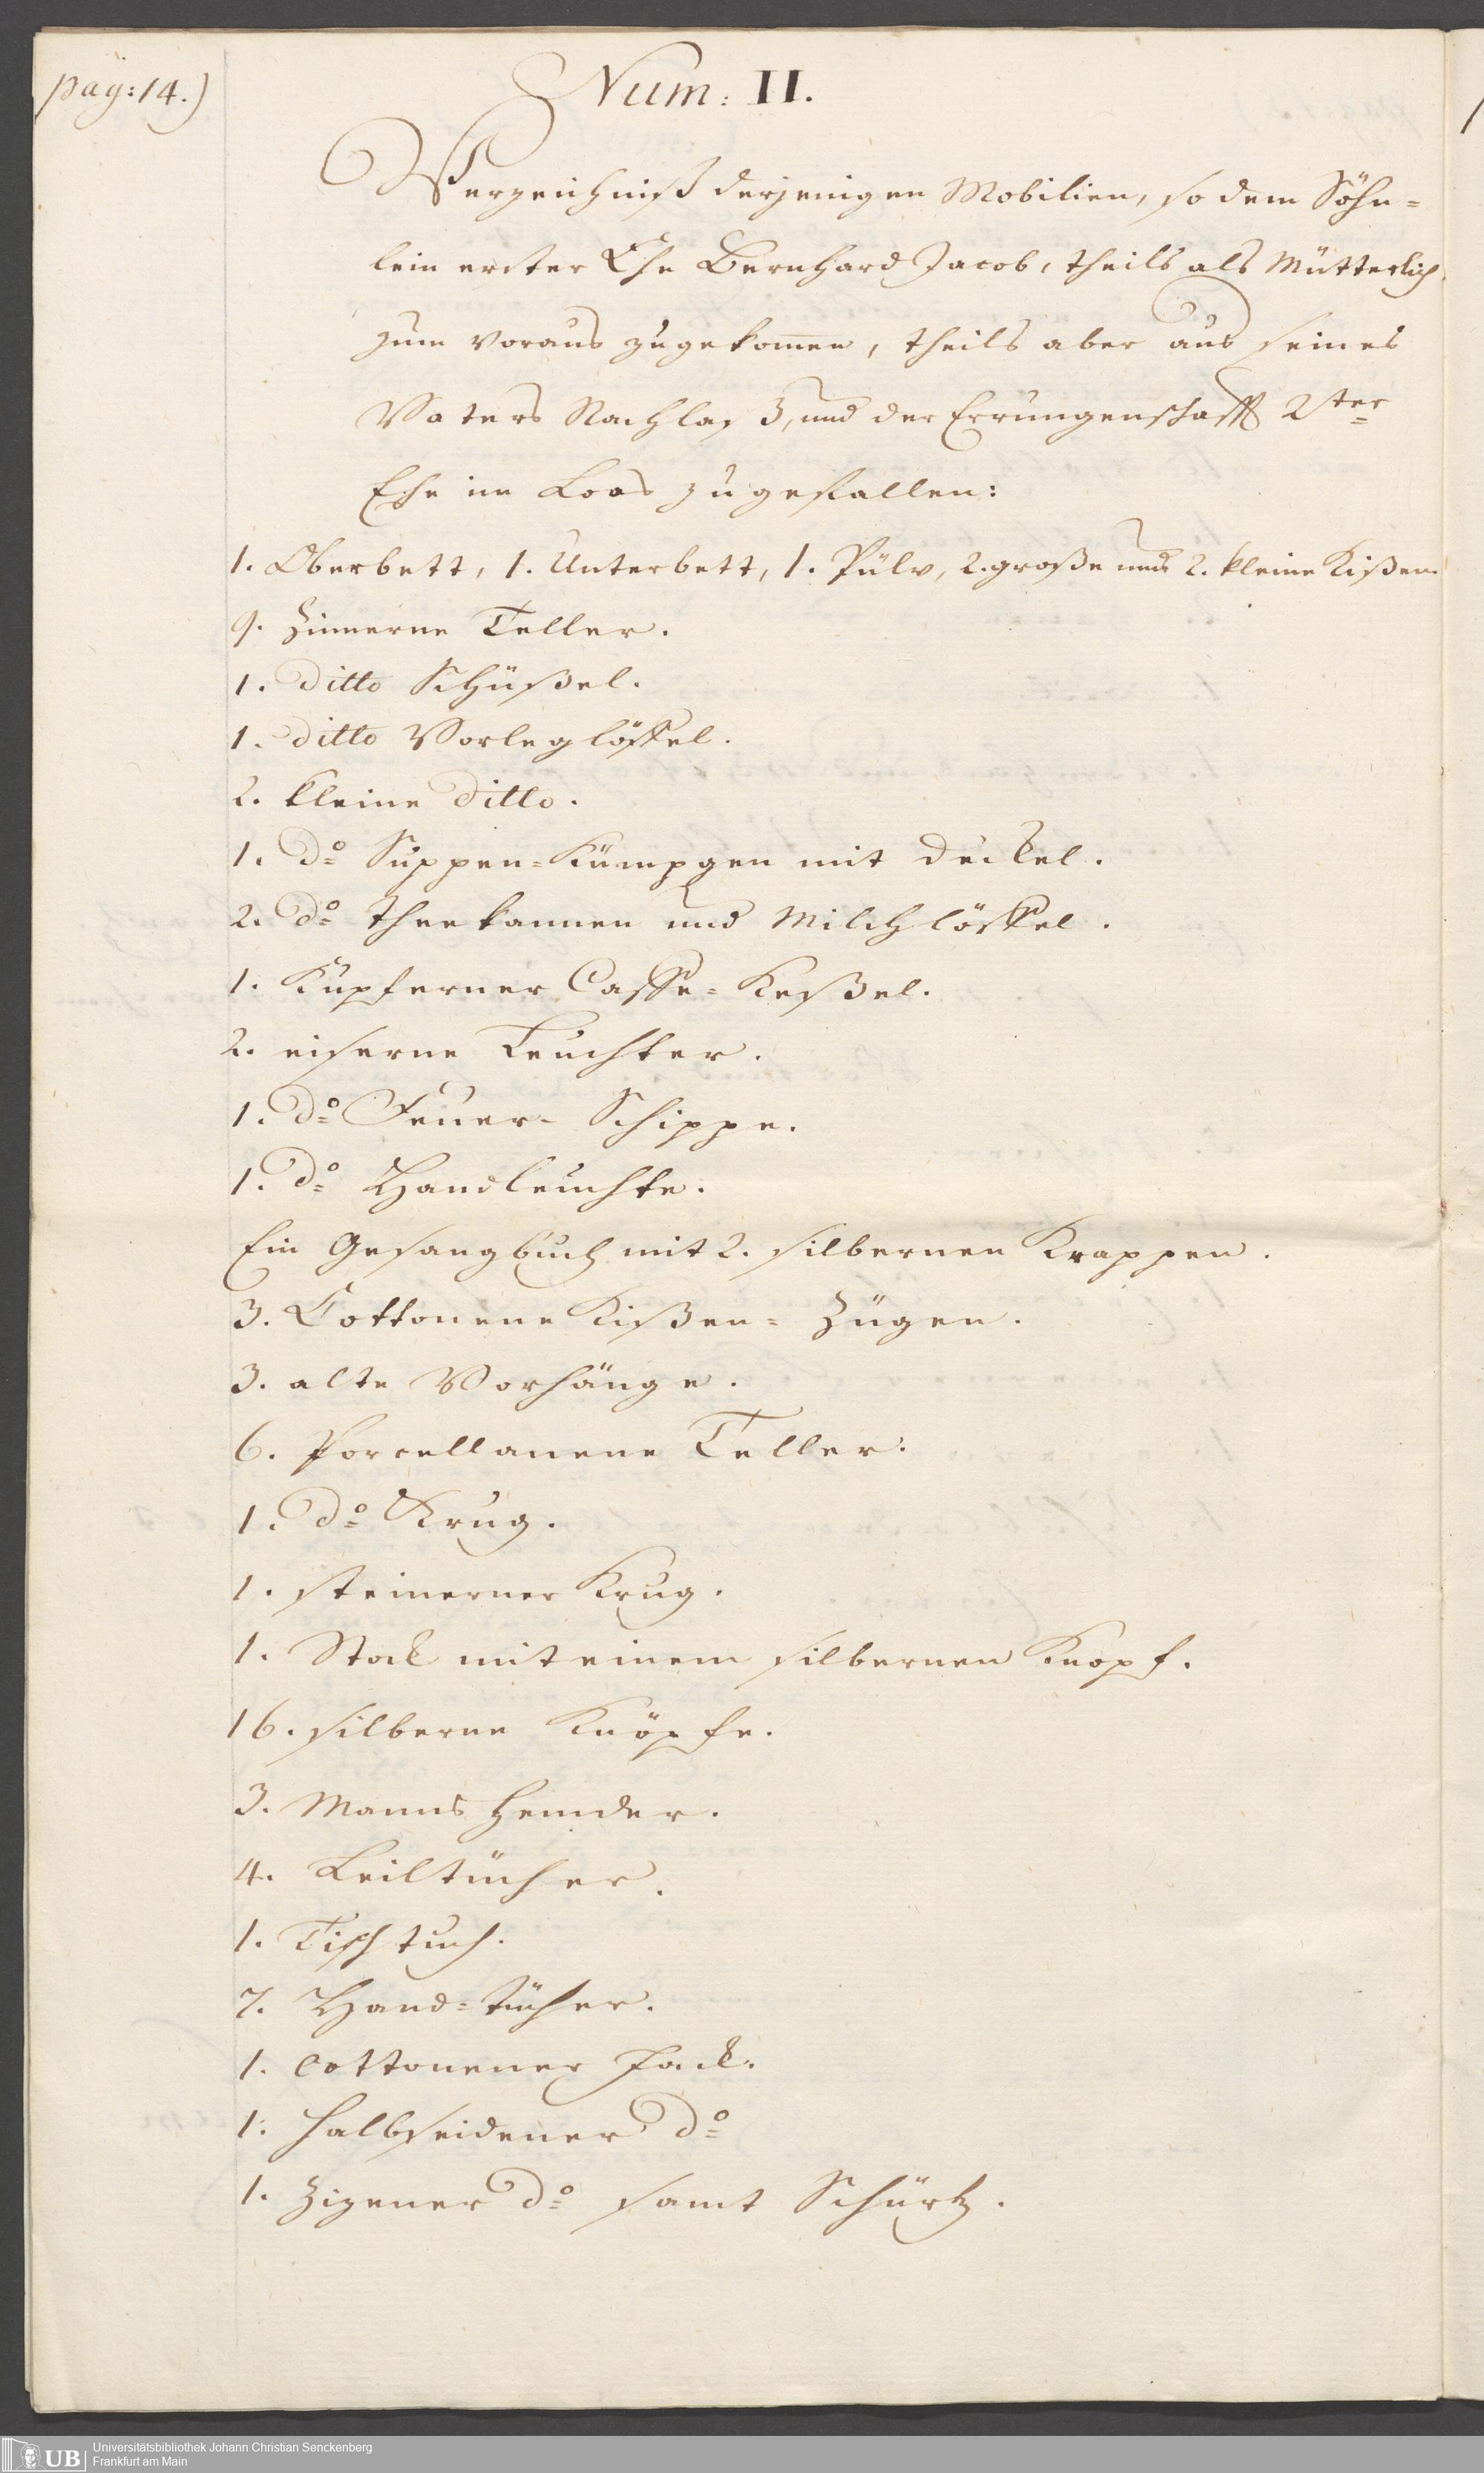 pag: 14.)
Num: II.
Verzeichniß derjenigen Mobilien, so dem Söhn=
lein erster Ehe Bernhard Jacob, theils als Mütterlich
zum voraus zugekom̅en, theils aber aus seines
Vaters Nachlaß, und der Errungenschafft 2ter
Ehe im Loos zugefallen:
1. Oberbett, 1. Unterbett, 1. Pülv, 2. große und 2. kleine Kißen.
9. Zinnerne Teller.
1. ditto Schüßel.
1. ditto Vorleglöffel.
2. kleine ditto.
1. do Suppen=Kümpgen mit deckel.
2. do theekannen und Milchlöffel.
1. Kupferner Caffe=Keßel.
2. eiserne Leuchter.
1. do Feuer=Schippe.
1. do Handleuchte.
Ein Gesangbuch mit 2. silbernen Krappen.
3. Cottonene Kißen=Zügen.
3. alte Vorhänge.
6. Porcellanene Teller.
1. do Krug.
1. steinerner Krug.
1. Stock mit einem silbernen Knopf.
16. silberne Knöpfe.
3. Manns Hemder.
4. Leiltücher.
1. Tischtuch.
7. Hand=tücher.
1. Cottonener Jack.
1. halbseidener do
1. Zizener do samt Schürtz.
UB
Universitätsbibliothek Johann Christian Senckenberg
Frankfurt am Main